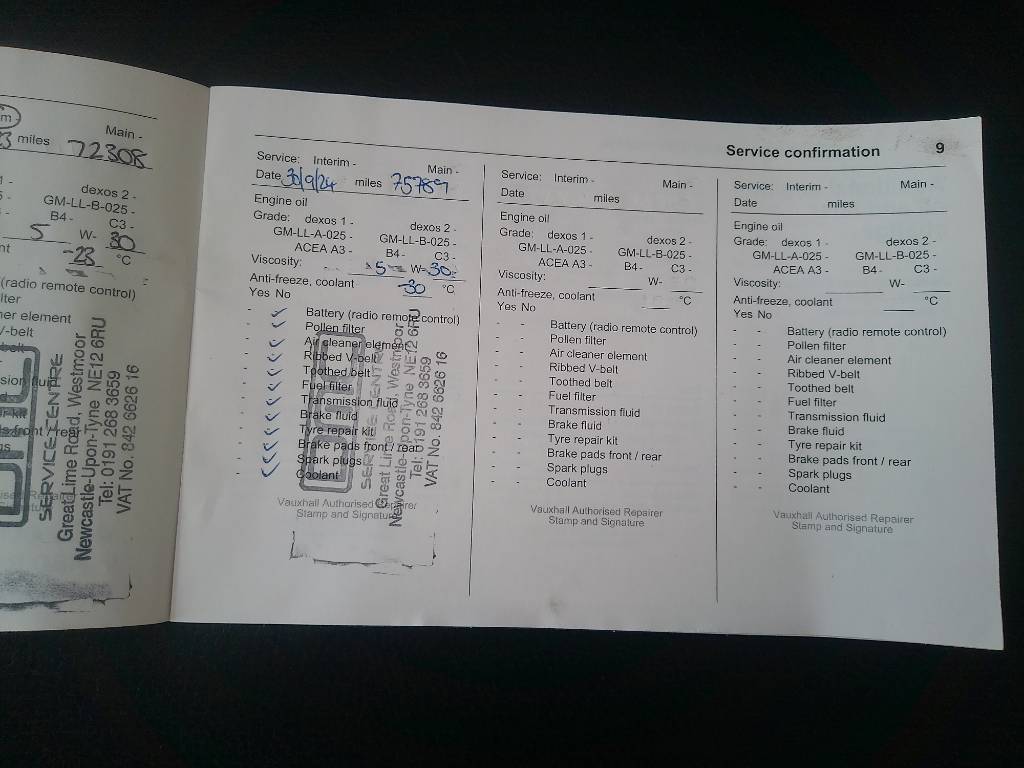 miles 72308
Main -
dexos 2 -
GM-LL-B-025 -
B4- C3 -
5 W- 30
-23 °C
(radio remote control)
SERVICE CENTRE
Great Lime Road, Westmoor
Newcastle-Upon-Tyne NE12 6RU
Tel: 0191 268 3659
VAT No. 842 6626 16
Service confirmation 9
Service: Interim - Main -
Date 30/9/24 miles 75789
Engine oil
Grade: dexos 1 - dexos 2 -
GM-LL-A-025 - GM-LL-B-025 -
ACEA A3 - B4 - C3 -
Viscosity: 5 W- 30
Anti-freeze, coolant -30 °C
Yes No
- Battery (radio remote control)
- Pollen filter
- Air cleaner element
- Ribbed V-belt
- Toothed belt
- Fuel filter
- Transmission fluid
- Brake fluid
- Tyre repair kit
- Brake pads front / rear
- Spark plugs
- Coolant
Vauxhall Authorised Repairer
Stamp and Signature
SERVICE CENTRE
Great Lime Road, Westmoor
Newcastle-Upon-Tyne NE12 6RU
Tel: 0191 268 3659
VAT No. 842 6626 16
Service: Interim - Main -
Date miles
Engine oil
Grade: dexos 1 - dexos 2 -
GM-LL-A-025 - GM-LL-B-025 -
ACEA A3 - B4 - C3 -
Viscosity: W-
Anti-freeze, coolant °C
Yes No
- - Battery (radio remote control)
- - Pollen filter
- - Air cleaner element
- - Ribbed V-belt
- - Toothed belt
- - Fuel filter
- - Transmission fluid
- - Brake fluid
- - Tyre repair kit
- - Brake pads front / rear
- - Spark plugs
- - Coolant
Vauxhall Authorised Repairer
Stamp and Signature
Service: Interim - Main -
Date miles
Engine oil
Grade: dexos 1 - dexos 2 -
GM-LL-A-025 - GM-LL-B-025 -
ACEA A3 - B4 - C3 -
Viscosity: W-
Anti-freeze, coolant °C
Yes No
- - Battery (radio remote control)
- - Pollen filter
- - Air cleaner element
- - Ribbed V-belt
- - Toothed belt
- - Fuel filter
- - Transmission fluid
- - Brake fluid
- - Tyre repair kit
- - Brake pads front / rear
- - Spark plugs
- - Coolant
Vauxhall Authorised Repairer
Stamp and Signature